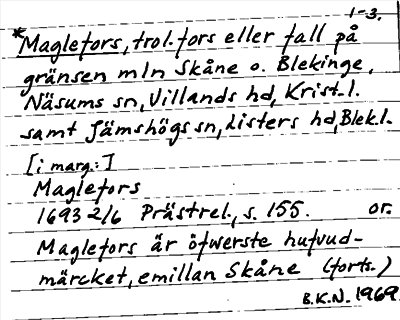 1-3.
*Maglefors, trol. fors eller fall på
gränsen mln Skåne o. Blekinge,
Näsums sn, Villands hd, Krist. l.
samt Jämshögs sn, Listers hd, Blek. l.
[i marg:]
Maglefors
1693 2/6 Prästrel., s. 155. or.
Maglefors är öfwerste hufvud-
märcket, emillan Skåne (forts.)
B.K.N. 1969